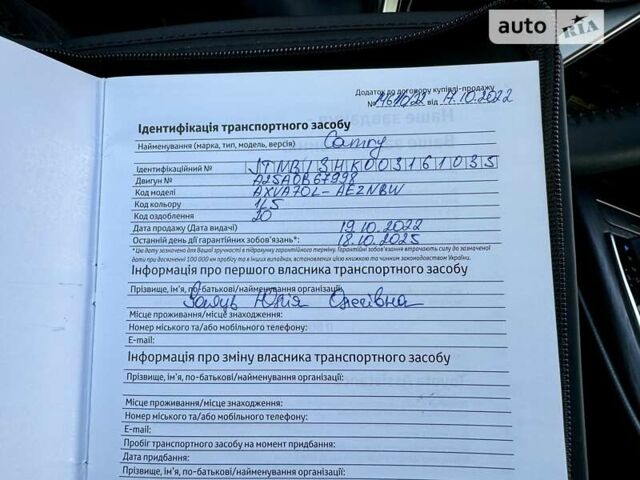 auto RIA
Додаток до договору купівлі-продажу
№ від 17.10.2022
Ідентифікація транспортного засобу
Найменування (марка, тип, модель, версія) Camry
Ідентифікаційний № JTNB13HK003161035
Двигун № A25A0B67998
Код моделі AXVA70L-AEZNBW
Код кольору 1L5
Код оздоблення 20
Дата продажу (Дата видачі) 19.10.2022
Останній день дії гарантійних зобов'язань*: 18.10.2025
*Цю дату зазначено для Вашої зручності в підрахунку гарантійного терміну. Гарантійні зобов'язання втрачають силу до зазначеної
дати при досягненні 100 000 км пробігу та в інших випадках, встановлених цією книжкою та чинним законодавством України.
Інформація про першого власника транспортного засобу
Прізвище, ім'я, по-батькові/найменування організації:
Юлія Олегівна
Місце проживання/місце знаходження:
Номер міського та/або мобільного телефону:
E-mail:
Інформація про зміну власника транспортного засобу
Прізвище, ім'я, по-батькові/найменування організації:
Місце проживання/місце знаходження:
Номер міського та/або мобільного телефону:
E-mail:
Пробіг транспортного засобу на момент придбання:
Дата придбання:
Прізвище, ім'я, по-батькові/найменування організації: